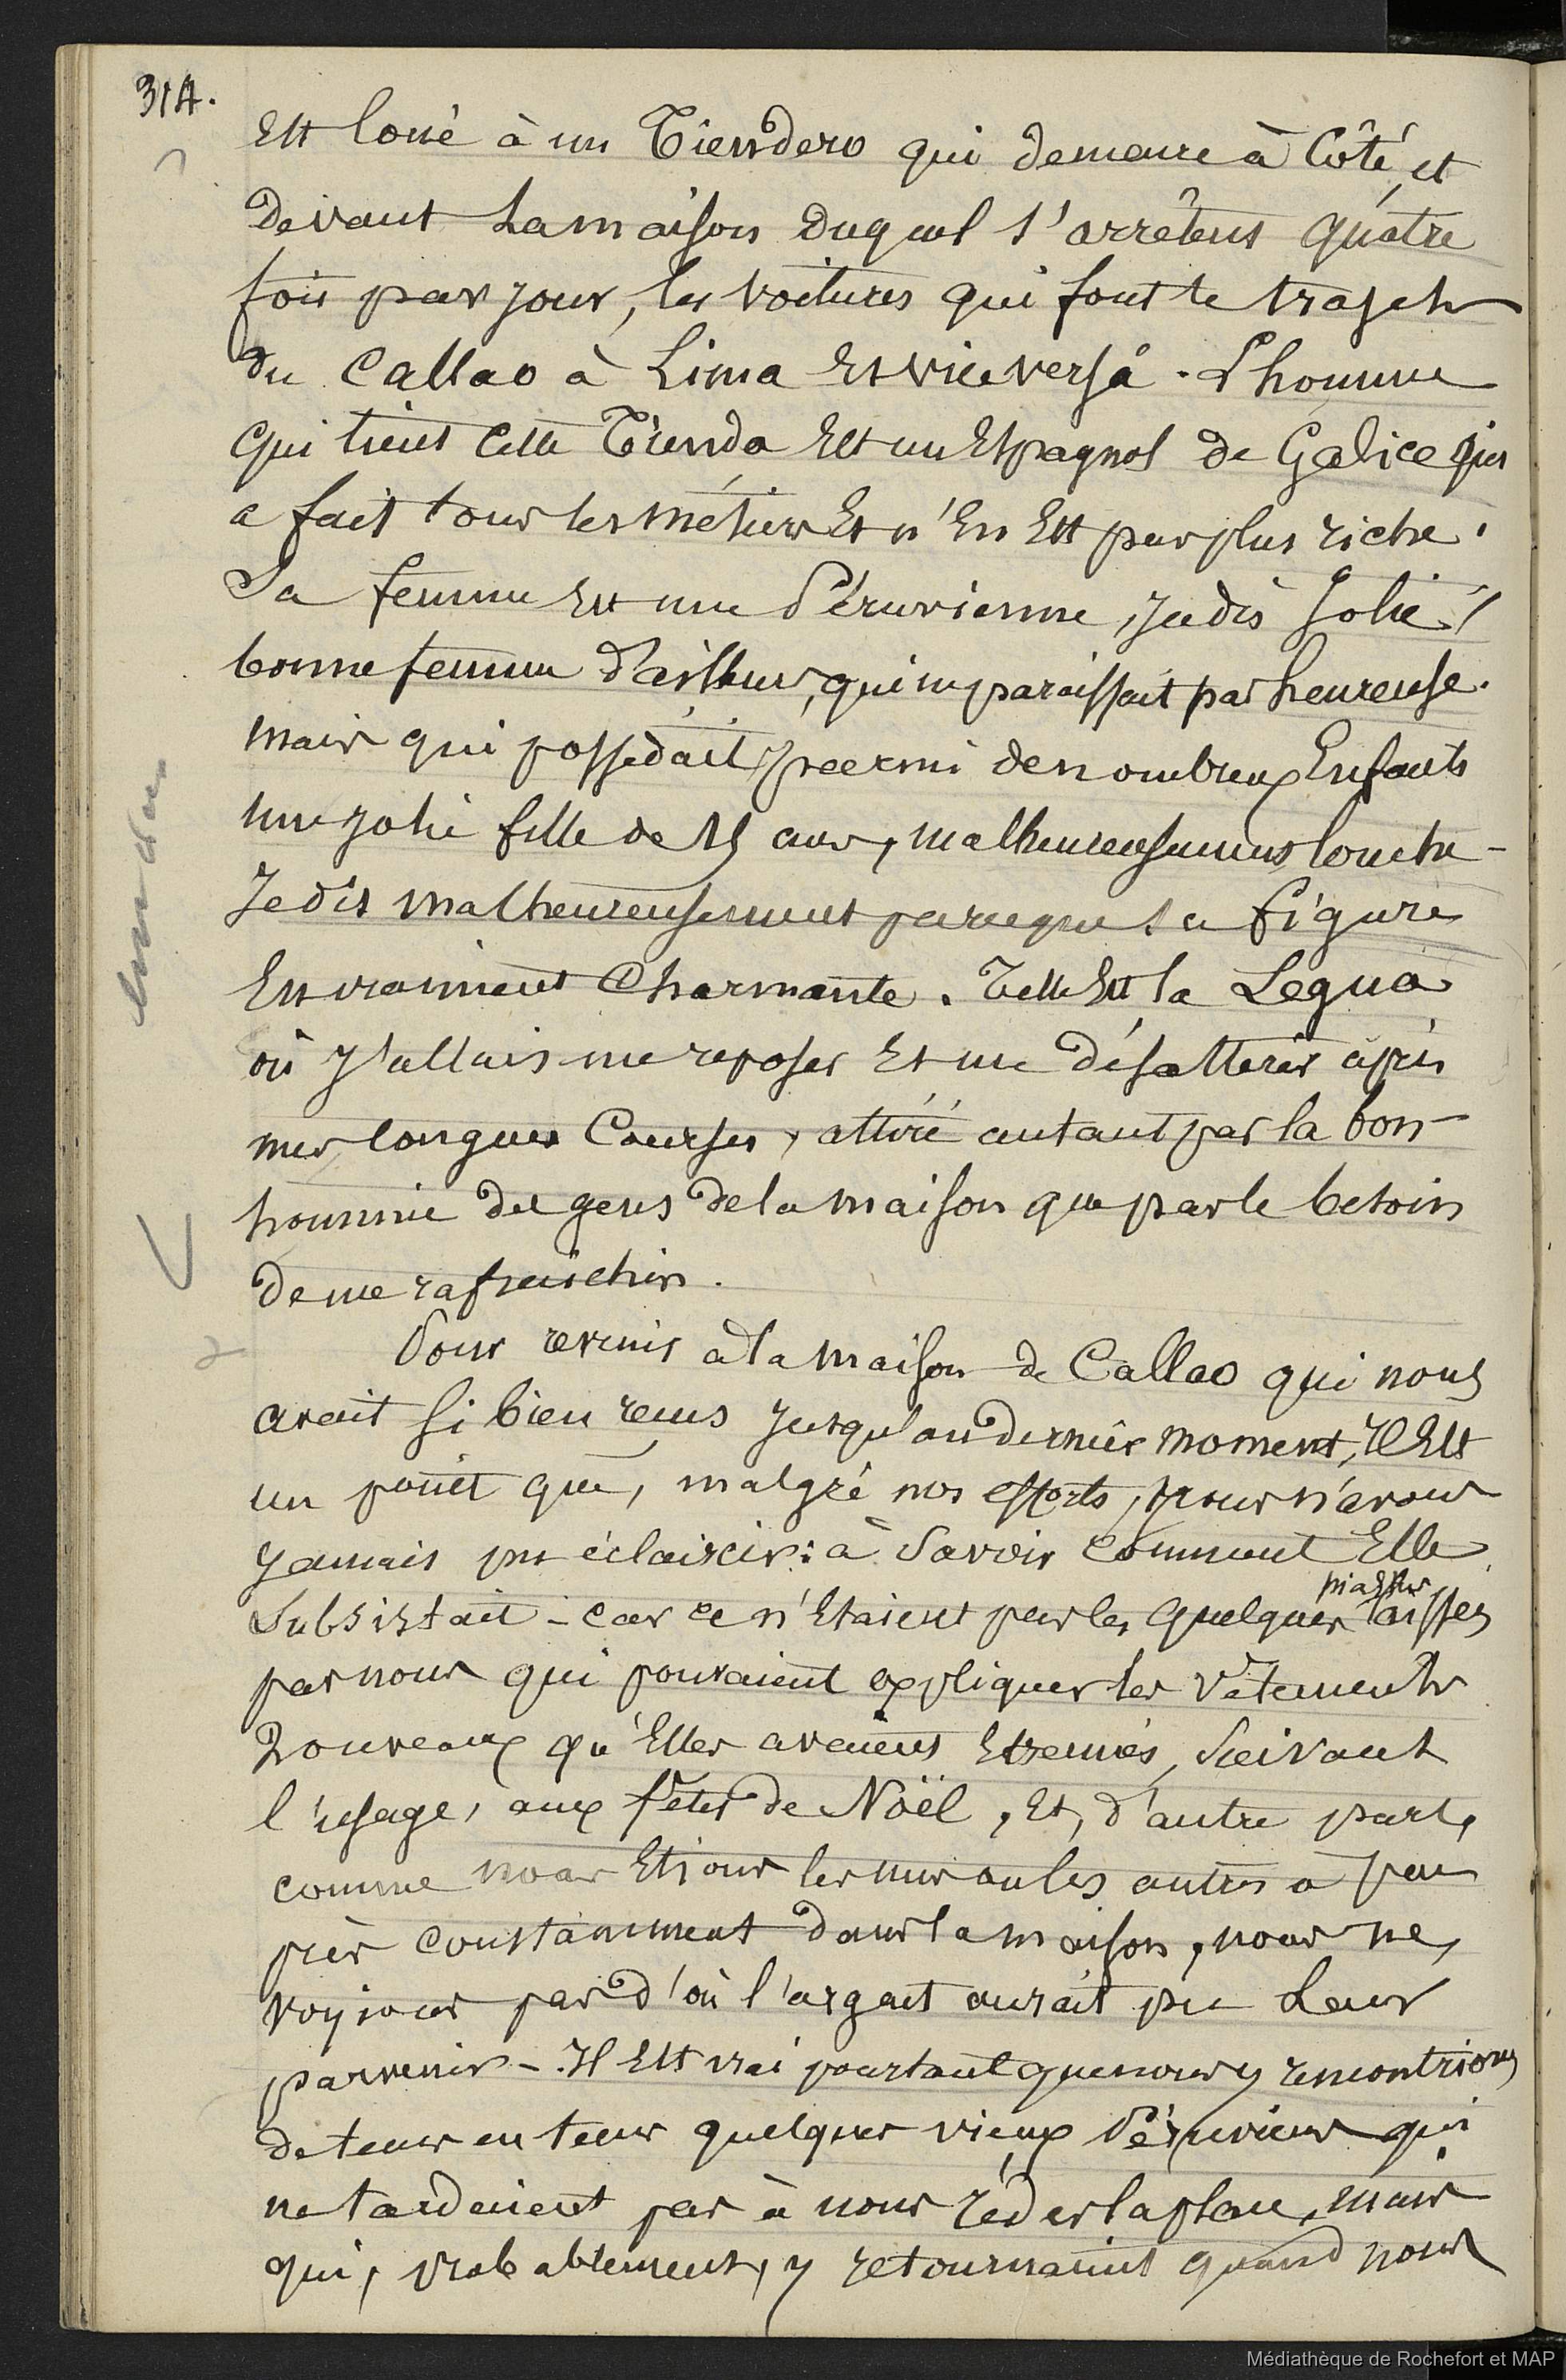 314.
Est loué à un Tiendero qui demeure à Côté, et
devant la maison duquel s'arrêtent quatre
fois par jour, les voitures qui font le trajet
du Callao à Lima et vice versâ. L'homme
qui tient cette Tienda est un Espagnol de Galice qui
a fait tous les métiers et n'en est pas plus riche.
Sa femme est une Péruvienne, jadis jolie,
bonne femme d'ailleurs, qui ne paraissait pas heureuse.
mais qui possédait, parmi de nombreux Enfants
une jolie fille de 15 ans, malheureusement louche -
Je dis malheureusement parceque sa figure
est vraiment Charmante. Telle est la Legua
où j'allais me reposer et me désaltérer après
mes longues Courses, attiré autant par la bon-
hommie des gens de la maison que par le besoin
de me rafraichir.
Pour revenir à la maison de Callao qui nous
avait si bien reçus jusqu'au dernier moment, Il Est
un point que, malgré nos efforts, nous n'avons
jamais pu éclaircir: à Savoir comment Elle
Subsistait - car ce n'étaient pas les quelques piastres laissées
par nous qui pouvaient expliquer les vêtements
Nouveaux qu'Elles avaient Etrennés, Suivant
l'usage, aux fêtes de Noël, Et, d'autre part,
comme nous Etions les uns ou les autres à peu
près constamment dans la maison, nous ne
voyions pas d'où l'argent aurait pu Leur
parvenir - Il Est vrai pourtant que nous y rencontrions
de temps en temps quelques vieux Péruviens qui
ne tardaient pas à nous céder la place, mais
qui, probablement, y retournaient quand nous
Médiathèque de Rochefort et MAP